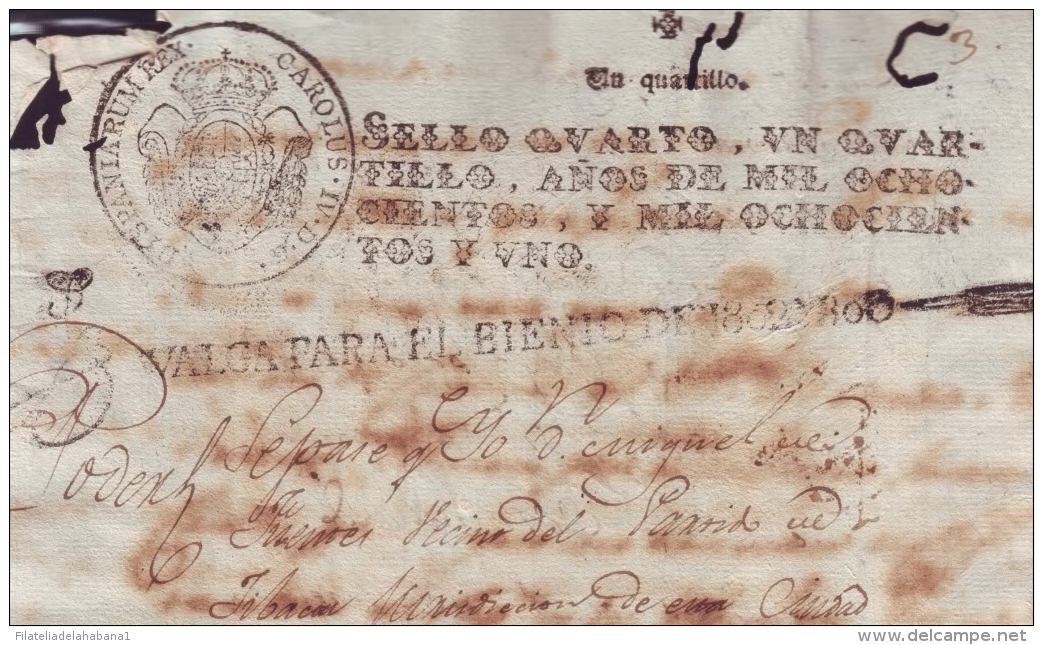 3
Un quartillo.
CAROLUS · IV · D · G · HISPANIARUM REX ·
SELLO QVARTO, VN QVAR-
TILLO, AÑOS DE MIL OCHO-
CIENTOS, Y MIL OCHOCIEN-
TOS Y VNO.
VALGA PARA EL BIENIO DE 1802
Poder
Sepase q Yo Dn. Miguel de
Fuentes Vecino del Partido de
Jurisdiccion de esta Ciudad
Filateliadelahabana1
www.delcampe.net